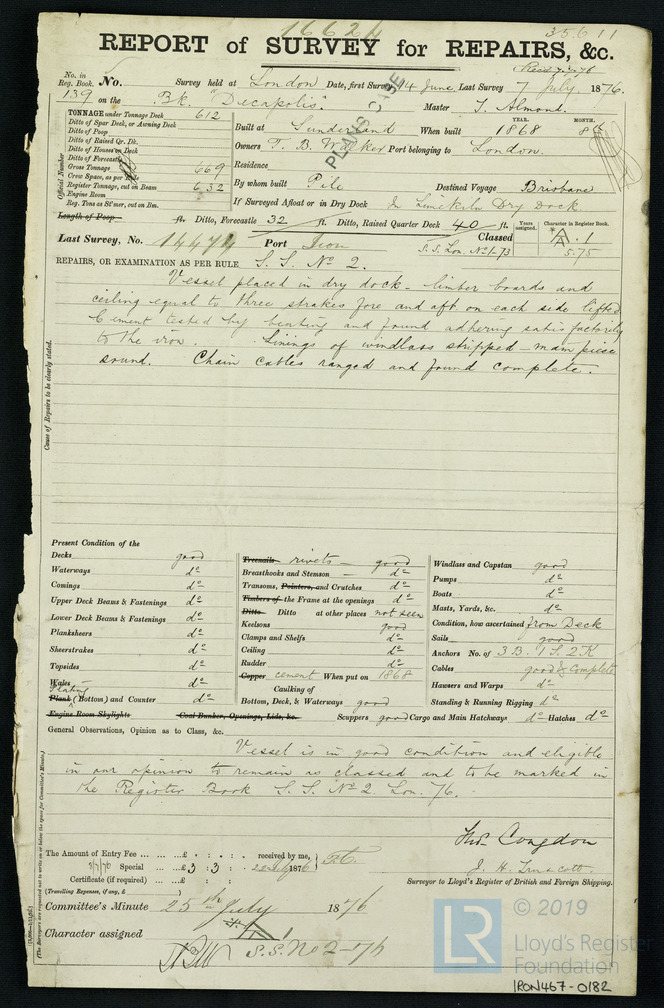 16624
35611
REPORT of SURVEY for REPAIRS, &c.
No. in Reg. Book. No. Survey held at London Date, first Survey 14 June Last Survey 7 July 1876.
139 on the Bk. "Decapolis" Master J. Almond.
TONNAGE under Tonnage Deck 612
Ditto of Spar Deck, or Awning Deck
Ditto of Poop
Ditto of Raised Qr. Dk.
Ditto of Houses on Deck
Ditto of Forecastle
Gross Tonnage 669
Crew Space, as per Rule
Register Tonnage, cut on Beam 632
Engine Room
Reg. Tons as St'mer, cut on Bm.
Official Number
YEAR. MONTH.
Built at Sunderland When built 1868 8
Owners T. B. Walker Port belonging to London.
Residence
By whom built Pile Destined Voyage Brisbane
If Surveyed Afloat or in Dry Dock In Limekiln Dry Dock
Length of Poop ft. Ditto, Forecastle 32 ft. Ditto, Raised Quarter Deck 40 ft.
Years assigned. Character in Register Book.
Last Survey, No. 14474 Port Iron Classed
S.S. Lon. No 1-73
A 1
5.75
REPAIRS, OR EXAMINATION AS PER RULE S. S. No 2.
Vessel placed in dry dock - limber boards and
ceiling equal to three strakes fore and aft on each side lifted
Cement tested by beating and found adhering satisfactorily
to the iron. Linings of windlass stripped - main piece
sound. Chain cables ranged and found complete.
Cause of Repairs to be clearly stated.
Present Condition of the
Decks good
Waterways do
Comings do
Upper Deck Beams & Fastenings do
Lower Deck Beams & Fastenings do
Planksheers do
Sheerstrakes do
Topsides do
Wales do
Plating
Plank (Bottom) and Counter do
Engine Room Skylights Coal Bunker, Openings, Lids, &c.
Treenails rivets - good
Breasthooks and Stemson do
Transoms, Pointers, and Crutches do
Timbers of the Frame at the openings do
Ditto Ditto at other places not seen
Keelsons good
Clamps and Shelfs do
Ceiling do
Rudder do
Copper cement When put on 1868
Caulking of
Bottom, Deck, & Waterways good
Scuppers good Cargo and Main Hatchways do Hatches do
Windlass and Capstan good
Pumps do
Boats do
Masts, Yards, &c. do
Condition, how ascertained from Deck
Sails good
Anchors No. of 3 B. 1 S. 2 K
Cables good & Complete
Hawsers and Warps do
Standing & Running Rigging do
General Observations, Opinion as to Class, &c.
Vessel is in good condition and eligible
in our opinion to remain as classed and to be marked in
the Register Book S. S. No 2. Lon. 76.
Thos Congdon
J. H. Truscott
Surveyor to Lloyd's Register of British and Foreign Shipping.
The Amount of Entry Fee ... ... £ : : received by me,
Special ... ... £3 : 3 : 1876
Certificate (if required) ... £ : :
(Travelling Expenses, if any, £ )
Committee's Minute 25th July 1876
Character assigned A 1
S.S. No 2-76
© 2019
LR
Lloyd's Register
Foundation
IRON467-0182